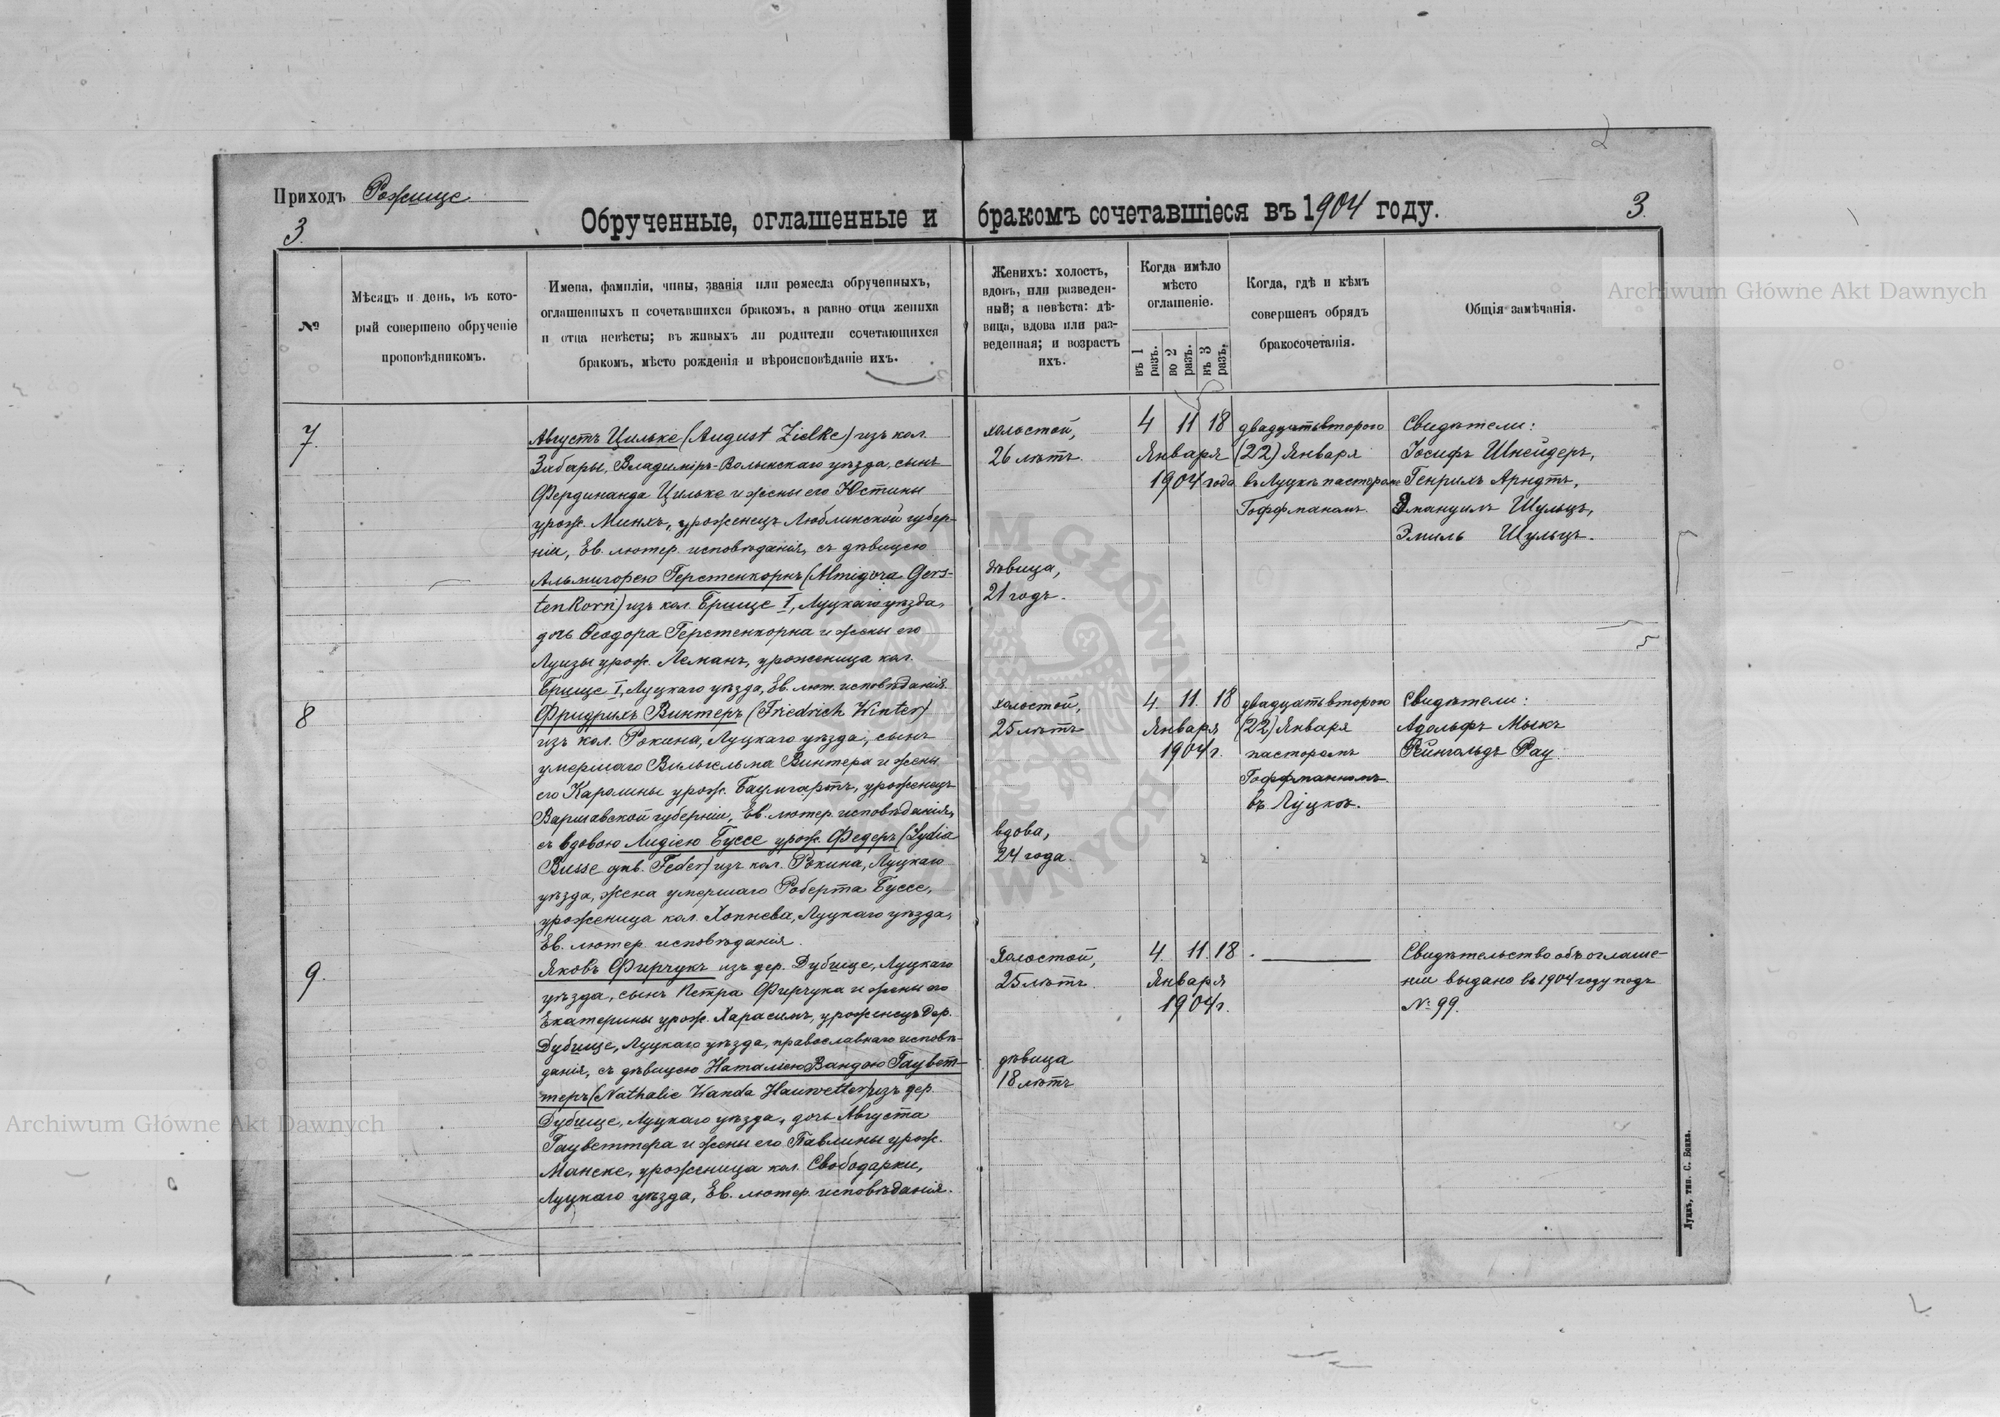 Приходъ Рожище
3.
Обрученные, оглашенные и бракомъ сочетавшіеся въ 1904 году.
3.
2
№
Мѣсяцъ и день, въ кото-
рый совершено обрученіе
проповѣдникомъ.
Имена, фамиліи, чины, званія или ремесла обрученныхъ,
оглашенныхъ и сочетавшихся бракомъ, а равно отца жениха
и отца невѣсты; въ живыхъ ли родители сочетающихся
бракомъ, мѣсто рожденія и вѣроисповѣданіе ихъ.
Женихъ: холостъ,
вдовъ, или разведен-
ный; а невѣста: дѣ-
вица, вдова или раз-
веденная; и возрастъ
ихъ.
Когда имѣло
мѣсто
оглашеніе.
въ 1 разъ.
во 2 разъ.
въ 3 разъ.
Когда, гдѣ и кѣмъ
совершенъ обрядъ
бракосочетанія.
Общія замѣчанія.
7.
Августъ Цильке (August Zielke) изъ кол.
Забары, Владимiръ-Волынскаго уѣзда, сынъ
Фердинанда Цильке и жены его Юстины
урож. Минхъ, уроженецъ Люблинской губер-
ніи, Ев. лютер. исповѣданія, съ дѣвицею
Альмигорею Герстенкорнъ (Almigora Gers-
tenkorn) изъ кол. Ерище I, Луцкаго уѣзда,
дочь Ѳеодора Герстенкорна и жены его
Луизы урож. Леманъ, уроженица кол.
Ерище I, Луцкаго уѣзда, Ев. лют. исповѣданія.
холостой,
26 лѣтъ.
дѣвица,
21 годъ.
4 11 18
Января
1904 года
двадцатьвторого
(22) Января
въ Луцкѣ пасторомъ
Гоффманомъ.
Свидѣтели:
Іосифъ Шнейдеръ,
Генрихъ Арндтъ,
Эмануилъ Шульцъ,
Эмиль Шульцъ.
8
Фридрихъ Винтеръ (Friedrich Winter)
изъ кол. Рокина, Луцкаго уѣзда, сынъ
умершаго Вильгельма Винтера и жены
его Каролины урож. Баумгартъ, уроженецъ
Варшавской губерніи, Ев. лютер. исповѣданія,
съ вдовою Лидіею Буссе урож. Федеръ (Lydia
Busse gnb. Feder) изъ кол. Рокина, Луцкаго
уѣзда, жена умершаго Роберта Буссе,
уроженица кол. Копнева, Луцкаго уѣзда,
Ев. лютер. исповѣданія.
холостой,
25 лѣтъ
вдова,
24 года.
4. 11. 18
Января
1904 г.
двадцатьвторого
(22) Января
пасторомъ
Гоффманномъ
въ Луцкѣ.
Свидѣтели:
Адольфъ Мыкъ
Рейнгольдъ Рау
9.
Яковъ Фирчукъ изъ дер. Дубище, Луцкаго
уѣзда, сынъ Петра Фирчука и жены его
Екатерины урож. Харасимъ, уроженецъ дер.
Дубище, Луцкаго уѣзда, православнаго исповѣ-
данія, съ дѣвицею Наталіею Вандою Гаувет-
теръ (Nathalie Wanda Hauwetter) изъ дер.
Дубище, Луцкаго уѣзда, дочь Августа
Гауветтера и жены его Павлины урож.
Манске, уроженица кол. Свободарки,
Луцкаго уѣзда, Ев. лютер. исповѣданія.
Холостой,
25 лѣтъ.
дѣвица
18 лѣтъ
4. 11. 18
Января
1904 г.
Свидѣтельство объ оглаше-
ніи выдано въ 1904 году подъ
№ 99.
Луцкъ, тип. С. Бонка.
Archiwum Główne Akt Dawnych
Archiwum Główne Akt Dawnych